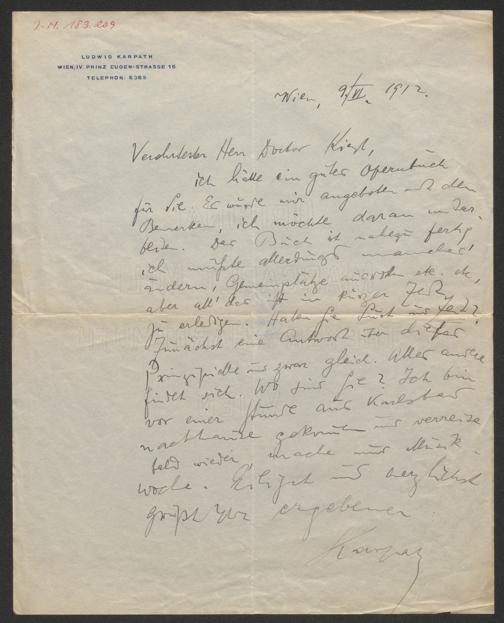 I.N. 183.209
LUDWIG KARPATH
WIEN, IV. PRINZ EUGEN-STRASSE 16
TELEPHON: 5365
Wien, 9/VI. 1912.
Verehrtester Herr Doctor Kienzl,
ich hätte ein gutes Opernbuch
für Sie. Es wurde mir angeboten mit dem
Bemerken, ich möchte daran mitar-
beiten. Das Buch ist nahezu fertig,
ich müßte allerdings manches
ändern, Gemeinplätze ausrotten etc. etc.
aber all' das ist in kurzer Zeit
zu erledigen. Haben Sie Lust und Zeit?
Zunächst eine Antwort über dieses
Prinzipielle und zwar gleich. Alles andere
findet sich. Wo sind Sie? Ich bin
vor einer Stunde aus Karlsbad
nachhause gekommen und verreise
bald wieder, nach Musik-
woche. Eiligst und herzlichst
grüßt Ihr ergebener
Karpath